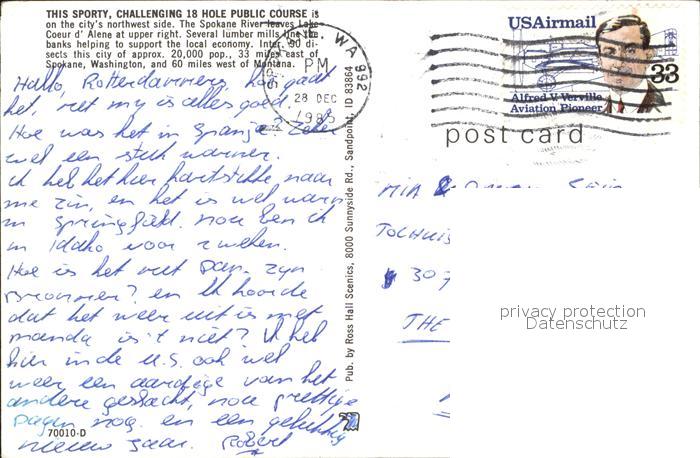 THIS SPORTY, CHALLENGING 18 HOLE PUBLIC COURSE is
on the city's northwest side. The Spokane River leaves Lake
Coeur d' Alene at upper right. Several lumber mills line the
banks helping to support the local economy. Inter. 90 di-
sects this city of approx. 20,000 pop., 33 miles east of
Spokane, Washington, and 60 miles west of Montana.
Hallo, Rotterdammers, hoe gaat
het, met my is alles goed.
Hoe was het in Spanje? Zeker
wel een stuk warmer.
ik heb het hier hartstikke naar
me zin, en het is wel warm
in Springfield. nou ben ik
in Idaho voor 2 weken.
Hoe is het met
en ik hoorde
dat het weer uit is met
manda is't niet? Ik heb
hier in de U.S. ook wel
weer een aardige van het
andere geslacht, nou prettige
dagen nog en een gelukkig
nieuw jaar. Robert
70010-D
Pub. by Ross Hall Scenics, 8000 Sunnyside Rd., Sandpoint, ID 83864
WA 992
PM
28 DEC
USAirmail
33
Alfred V. Verville
Aviation Pioneer
post card
MIA &
TOLHUIS
307
THE
privacy protection
Datenschutz